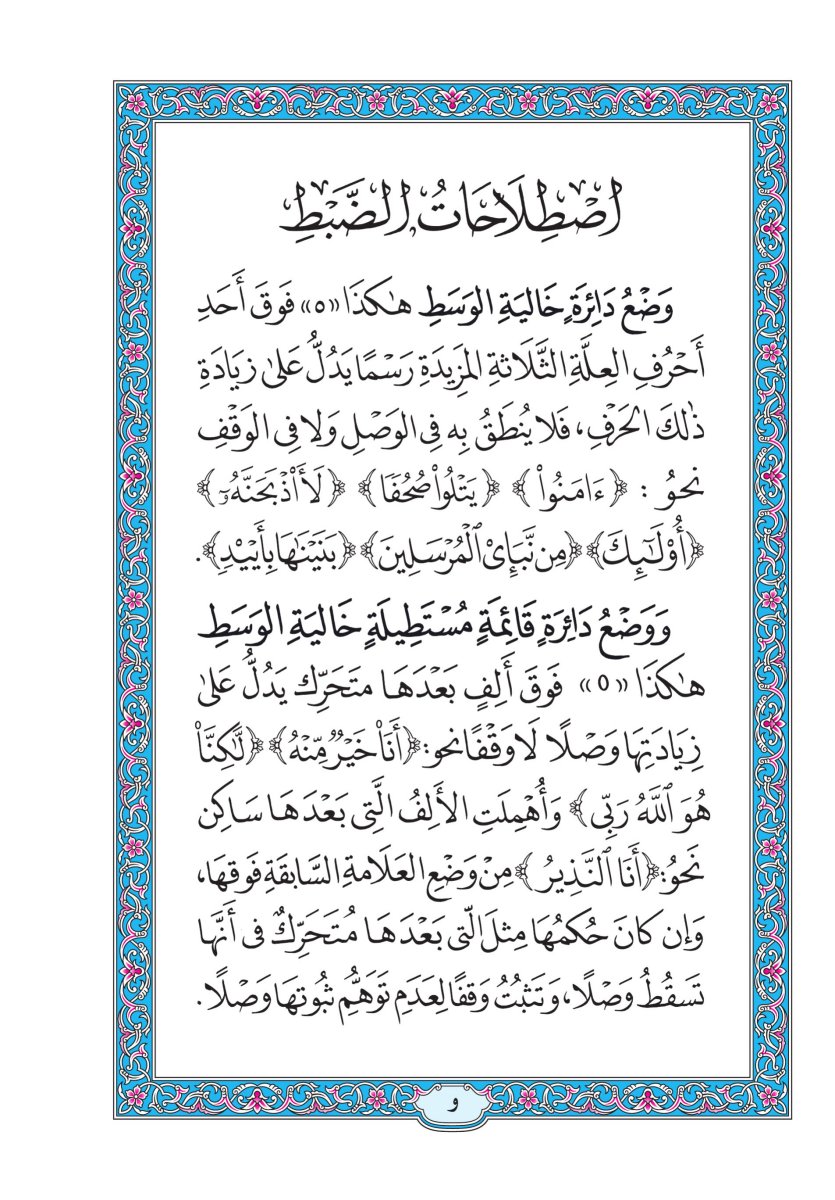 اصْطِلَاحَاتُ الضَّبْطِ
وَضْعُ دَائِرَةٍ خَالِيَةِ الوَسَطِ هٰكَذَا «ه» فَوْقَ أَحَدِ
أَحْرُفِ العِلَّةِ الثَّلَاثَةِ المَزِيدَةِ رَسْمًا يَدُلُّ عَلىٰ زِيَادَةِ
ذٰلكَ الحَرْفِ، فَلا يُنطَقُ بِه فِي الوَصْلِ وَلا فِي الوَقْفِ
نحوُ : ﴿ءَامَنُوا۟﴾ ﴿يَتْلُوا۟ صُحُفًا﴾ ﴿لَأَا۟ذْبَحَنَّهُۥٓ﴾
﴿أُو۟لَـٰٓئِكَ﴾ ﴿مِن نَّبَإِى۟ ٱلْمُرْسَلِينَ﴾ ﴿بَنَيْنَـٰهَا بِأَيْي۟دٍ﴾.
وَوَضْعُ دَائِرَةٍ قَائِمَةٍ مُسْتَطِيلَةٍ خَالِيَةِ الوَسَطِ
هٰكَذَا «٥» فَوْقَ أَلِفٍ بَعْدَهَا متَحَرِّك يَدُلُّ عَلىٰ
زِيَادَتِهَا وَصْلًا لَا وَقْفًا نحو: ﴿أَنَا۠ خَيْرٌ مِّنْهُ﴾ ﴿لَّـٰكِنَّا۠
هُوَ ٱللَّهُ رَبِّى﴾ وَأُهْمِلَتِ الأَلِفُ الَّتِي بَعْدَهَا سَاكِن
نَحوُ: ﴿أَنَا ٱلنَّذِيرُ﴾ مِنْ وَضْعِ العَلَامةِ السَّابقَةِ فَوقهَا،
وَإن كانَ حُكمُهَا مِثلَ الَّتِى بَعْدَهَا مُتَحَرِّكٌ فى أَنَّهَا
تَسقُطُ وَصْلًا، وَتَثبُتُ وَقفًا لِعَدَمِ تَوَهُّمِ ثُبُوتهَا وَصْلًا.
و